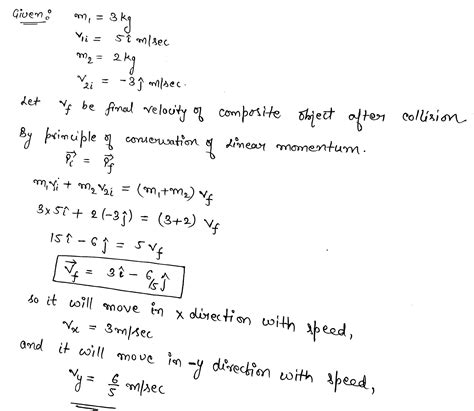 Given:
m₁ = 3 kg
v₁ᵢ = 5î m/sec
m₂ = 2 kg
v₂ᵢ = -3ĵ m/sec.
Let v_f be final velocity of composite object after collision
By principle of conservation of linear momentum.
P⃗ᵢ = P⃗_f
m₁vᵢ + m₂v₂ᵢ = (m₁+m₂) v_f
3×5î + 2(-3ĵ) = (3+2) v_f
15î - 6ĵ = 5v_f
v⃗_f = 3î - 6/5 ĵ
so it will move in x direction with speed,
vₓ = 3m/sec
and it will move in -y direction with speed,
v_y = 6/5 m/sec